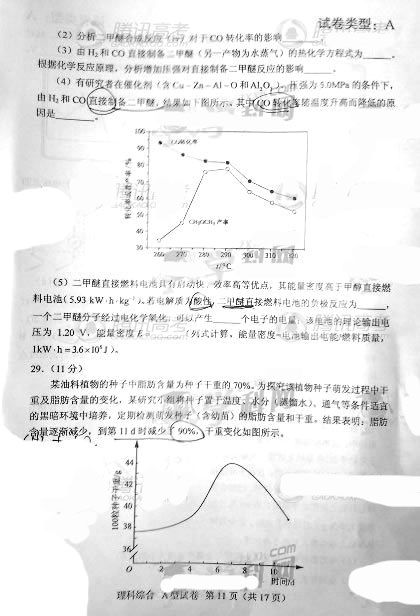 试卷类型：A
（2）分析二甲醚合成反应（iv）对于CO转化率的影响
（3）由H₂和CO直接制备二甲醚（另一产物为水蒸气）的热化学方程式为______。
根据化学反应原理，分析增加压强对直接制备二甲醚反应的影响______
（4）有研究者在催化剂（含Cu-Zn-Al-O和Al₂O₃）、压强为5.0MPa的条件下，
由H₂和CO直接制备二甲醚，结果如下图所示。其中CO转化率随温度升高而降低的原
因是______。
100
90
80
CO转化率
CH₃OCH₃产率
260 270 280 290 300 310 320
T/℃
（5）二甲醚直接燃料电池具有启动快、效率高等优点，其能量密度高于甲醇直接燃
料电池（5.93 kW·h·kg⁻¹）。若电解质为酸性，二甲醚直接燃料电池的负极反应为______，
一个二甲醚分子经过电化学氧化，可以产生______个电子的电量；该电池的理论输出电
压为 1.20 V，能量密度E=______（列式计算，能量密度=电池输出电能/燃料质量，
1kW·h=3.6×10⁶J）。
29.（11分）
某油料植物的种子中脂肪含量为种子干重的70%。为探究该植物种子萌发过程中干
重及脂肪含量的变化，某研究小组将种子置于温度、水分（蒸馏水）、通气等条件适宜
的黑暗环境中培养，定期检测萌发种子（含幼苗）的脂肪含量和干重。结果表明：脂肪
含量逐渐减少，到第11 d时减少了90%，干重变化如图所示。
44
42
40
38
36
100粒种子干重/g
0 2 4 6 8 10
时间/d
理科综合 A型试卷 第11页（共17页）